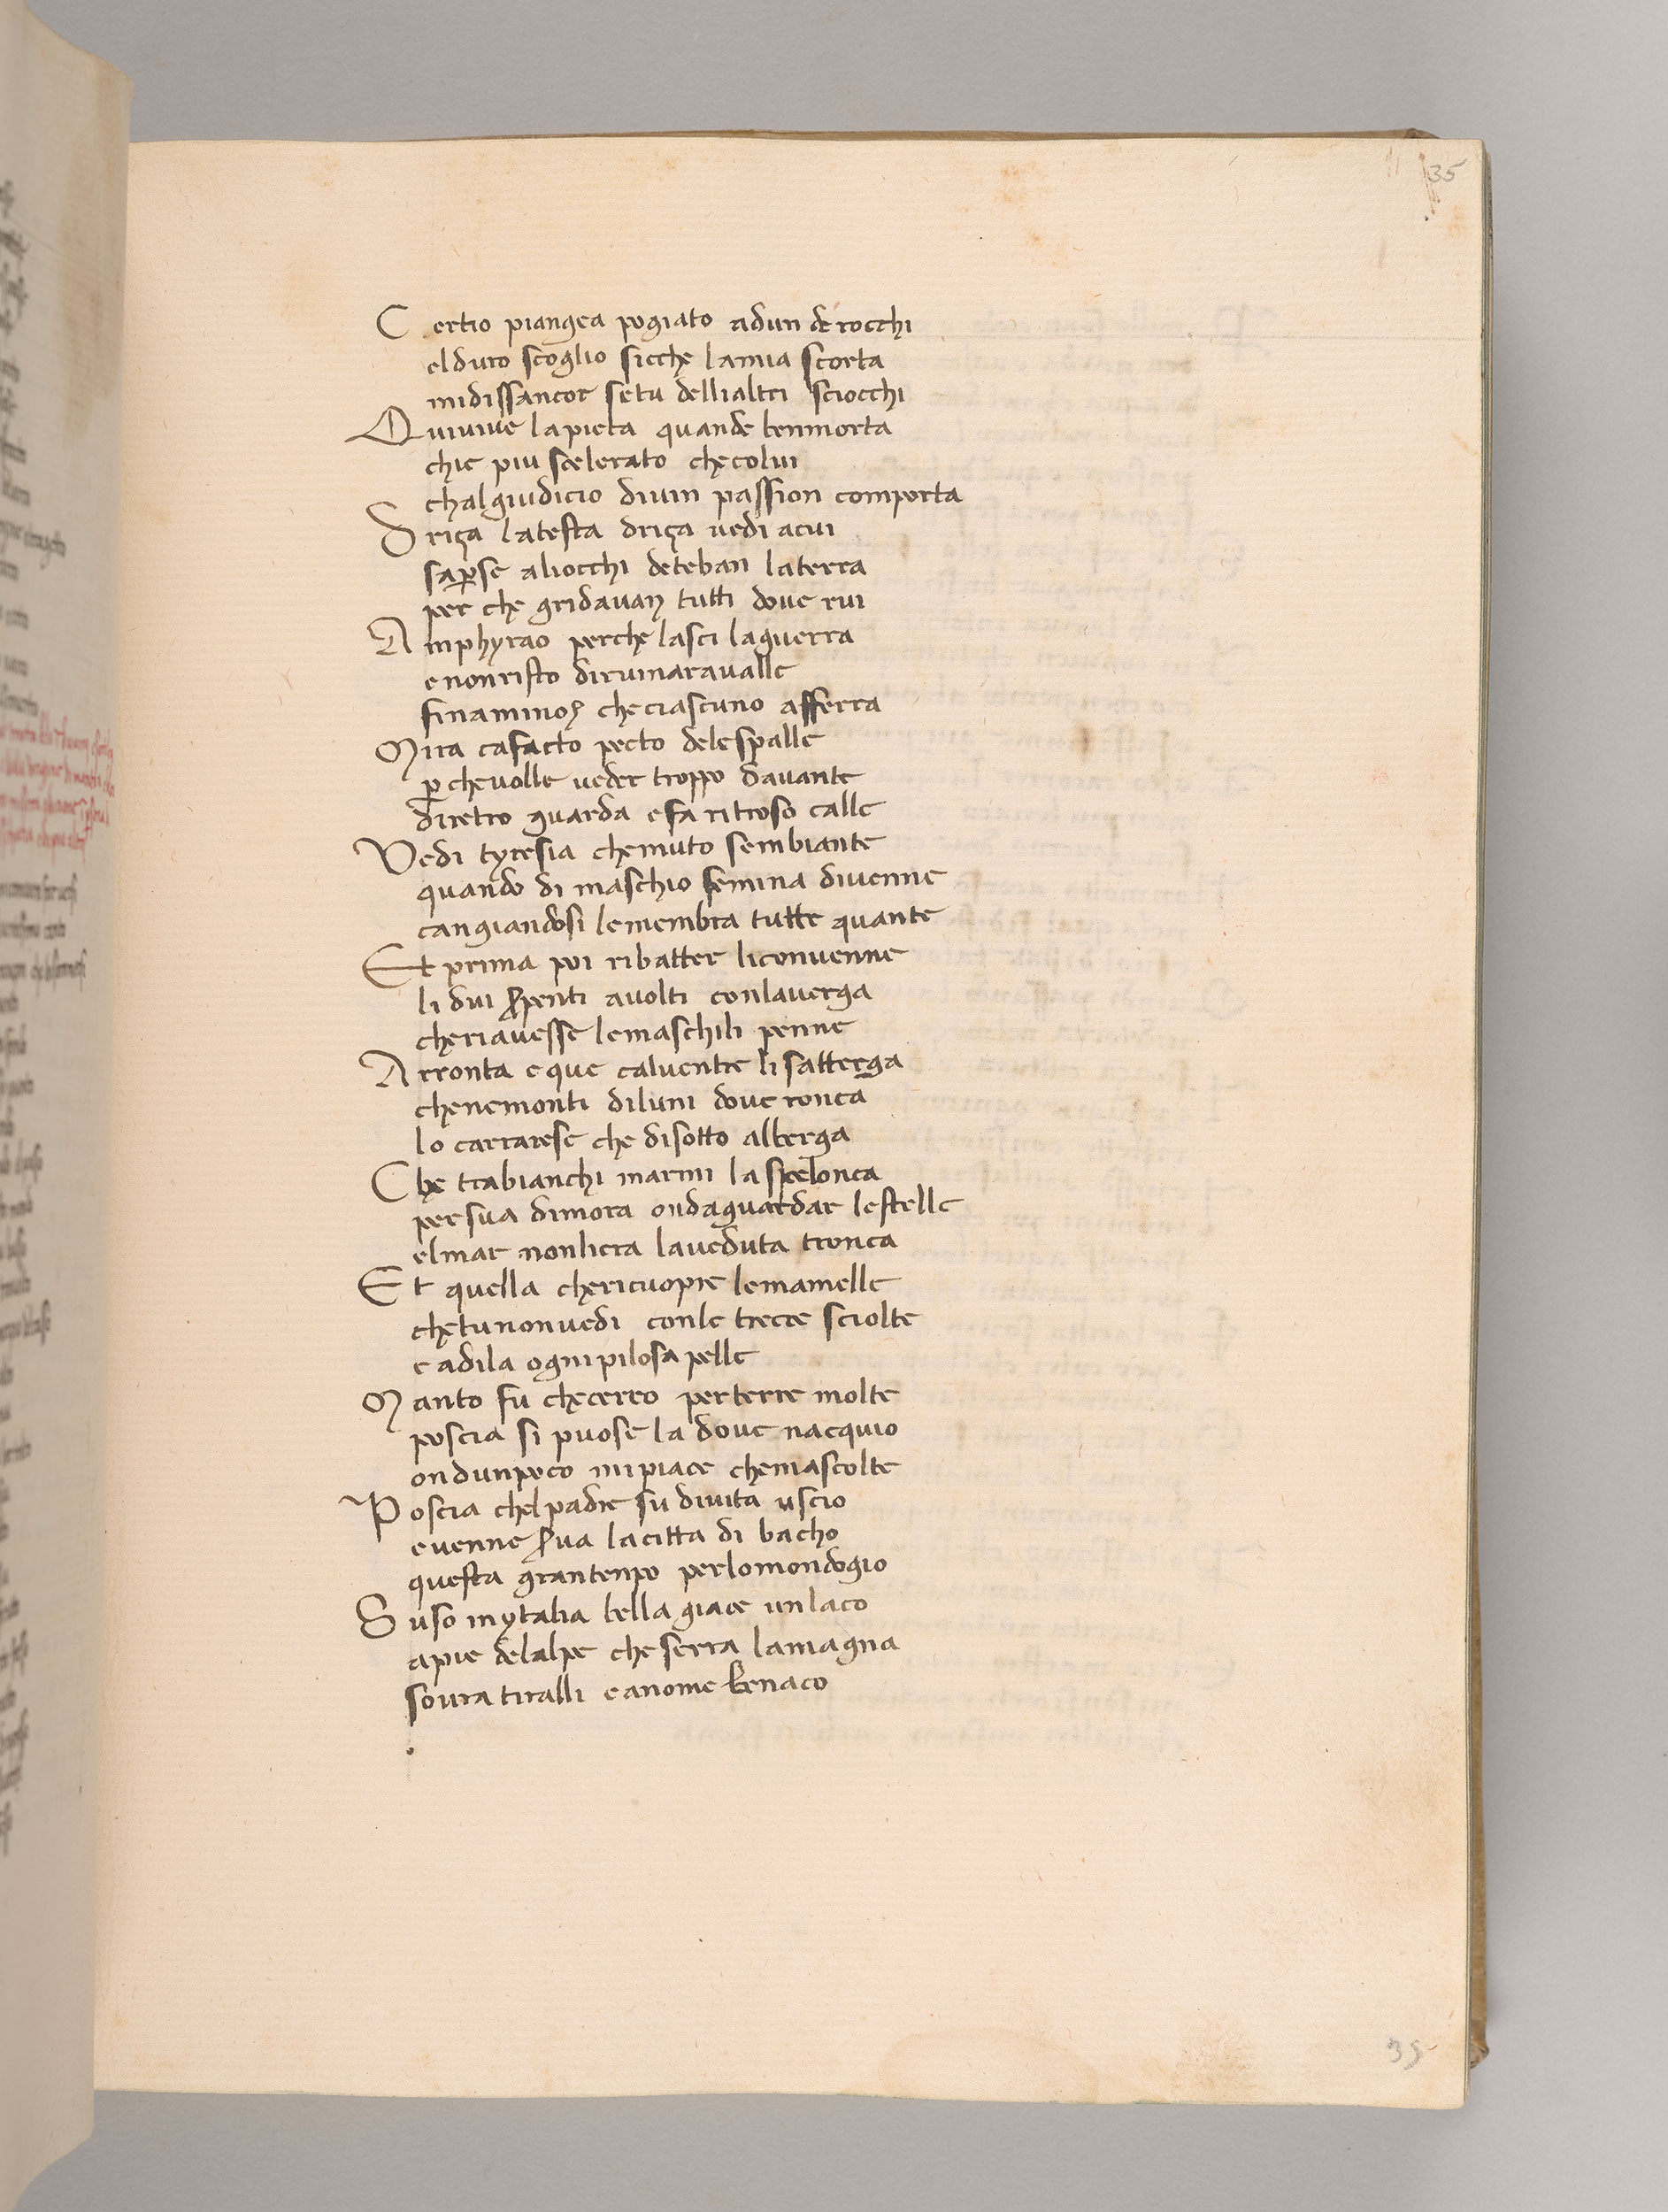 35
Certio piangea pogiato adun de rocchi
elduro scoglio sicche lamia scorta
midissancor setu dellialtri sciocchi
Quiuiue lapieta quande benmorta
chie piu scelerato checolui
chalgiudicio diuin passion comporta
Driça latesta driça uedi acui
saꝑse aliocchi deteban laterra
per che gridauan tutti doue rui
Amphyrao perche lasci laguerra
enonristo diruinareaualle
finaminos checiascuno afferra
Mira cafacto pecto delespalle
ꝑchevolle ueder troppo dauante
diretro guarda efa ritroso calle
Vedi tyresia chemuto sembiante
quando di maschio femina diuenne
cangiandosi lemembra tutte quante
Et prima poi ribatter liconuenne
li dui ẜpenti auolti conlauerga
cheriauesse lemaschili penne
Arronta eque caluentre lisatterga
chenemonti diluni doue ronca
lo carrarese che disotto alberga
Che trabianchi marmi la spelonca
persua dimora ondaguardar lestelle
elmar nonliera laueduta tronca
Et quella chericuopre lemamelle
chetunonuedi conle trecce sciolte
e adila ognipilosa pelle
Manto fu checerco perterre molte
poscia si puose la doue nacquio
ondunpoco mipiace chemascolte
Poscia chelpadre su diuita uscio
euenne ẜua lacitta di bacho
questa grantenpo perlomondogio
Suso inytalia bella giace unlaco
apie delalpe che serra lamagna
soura tiralli eanome benaco
39